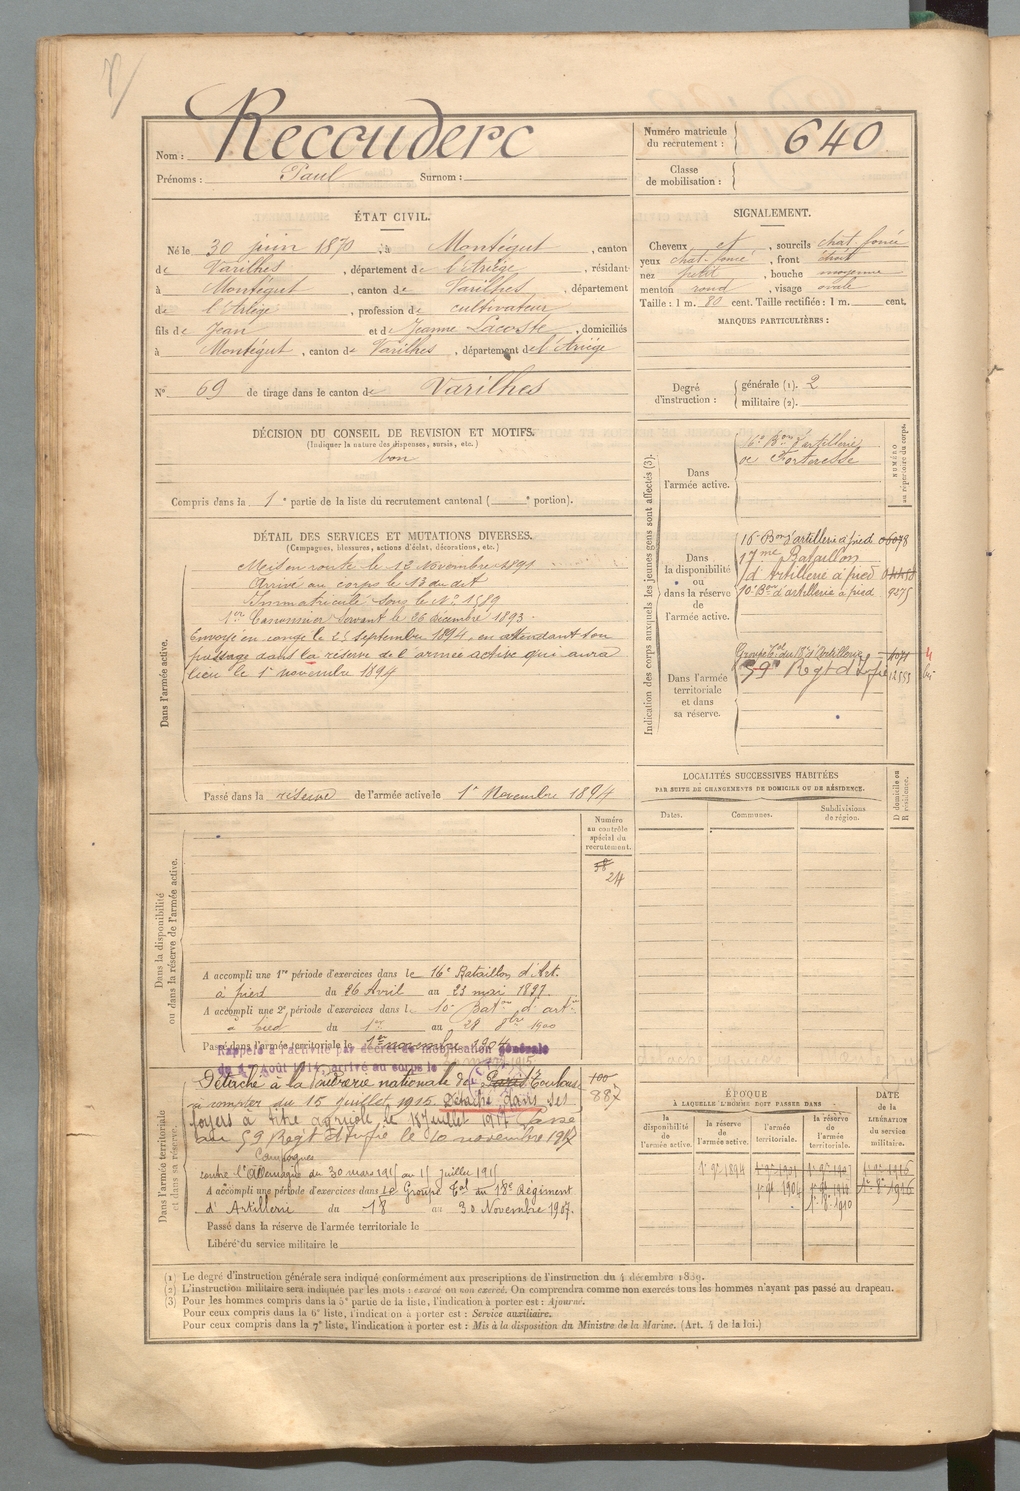 Nom : Reccuderc
Prénoms : Paul Surnom :
Numéro matricule du recrutement : 640
Classe de mobilisation :
ÉTAT CIVIL.
Né le 30 juin 1870, à Montégut, canton
de Varilhes, département de l'Ariège, résidant
à Montégut, canton de Varilhes, département
de l'Ariège, profession de cultivateur
fils de Jean et de Jeanne Lacoste, domiciliés
à Montégut, canton de Varilhes, département de l'Ariège
N° 69 de tirage dans le canton de Varilhes
SIGNALEMENT.
Cheveux et, sourcils chat. foncé
yeux chat. foncé, front étroit
nez petit, bouche moyenne
menton rond, visage ovale
Taille : 1 m. 80 cent. Taille rectifiée : 1 m. cent.
MARQUES PARTICULIÈRES :
Degré d'instruction : générale (1). 2
militaire (2).
DÉCISION DU CONSEIL DE REVISION ET MOTIFS.
(Indiquer la nature des dispenses, sursis, etc.)
bon
Compris dans la 1e partie de la liste du recrutement cantonal ( e portion).
DÉTAIL DES SERVICES ET MUTATIONS DIVERSES.
(Campagnes, blessures, actions d'éclat, décorations, etc.)
Dans l'armée active.
Mis en route le 12 Novembre 1891
Arrivé au corps le 13 du dit
Immatriculé sous le N° 1589
1er Canonnier servant le 26 décembre 1893.
Envoyé en congé le 25 septembre 1894, en attendant son
passage dans la réserve de l'armée active qui aura
lieu le 1er novembre 1894
Passé dans la réserve de l'armée active le 1er Novembre 1894
Indication des corps auxquels les jeunes gens sont affectés (3).
NUMÉRO au répertoire du corps.
Dans l'armée active.
16e Bon d'artillerie
de Forteresse
Dans la disponibilité ou dans la réserve de l'armée active.
16 Bon d'artillerie à pied
17me Bataillon
d'Artillerie à pied
10e Bon d'artillerie à pied 9275
Dans l'armée territoriale et dans sa réserve.
Groupe Tal du 18e d'Artillerie
59e Regt d'Infie 12553
LOCALITÉS SUCCESSIVES HABITÉES
PAR SUITE DE CHANGEMENTS DE DOMICILE OU DE RÉSIDENCE.
Dates. Communes. Subdivisions de région. D domicile ou R résidence.
Numéro au contrôle spécial du recrutement.
58
24
Dans la disponibilité ou dans la réserve de l'armée active.
A accompli une 1re période d'exercices dans le 16e Bataillon d'Art.
à pied du 26 Avril au 23 mai 1897.
A accompli une 2e période d'exercices dans le 10e Baton d'artie
à pied du 1er au 28 8bre 1900
Passé dans l'armée territoriale le 1er novembre 1904
Rappelé à l'activité par décret de mobilisation générale
du 1er Août 1914, arrivé au corps le
Dans l'armée territoriale et dans sa réserve.
Détaché à la Poudrerie nationale de Paris Toulouse
à compter du 15 Juillet 1915. Détaché dans ses
foyers à titre agricole, le Juillet 1917. Passé
au 59 Regt d'Infie le 10 novembre 1917
Campagnes
contre l'Allemagne du 30 mars 1915 au 15 juillet 1915
A accompli une période d'exercices dans Le Groupe Tal du 18e Régiment
d'Artillerie du 18 au 30 Novembre 1907.
Passé dans la réserve de l'armée territoriale le
Libéré du service militaire le
100
887
ÉPOQUE
À LAQUELLE L'HOMME DOIT PASSER DANS
la disponibilité de l'armée active.
la réserve de l'armée active.
l'armée territoriale.
la réserve de l'armée territoriale.
DATE de la LIBÉRATION du service militaire.
1er 9e 1894
(1) Le degré d'instruction générale sera indiqué conformément aux prescriptions de l'instruction du 4 décembre 1889.
(2) L'instruction militaire sera indiquée par les mots : exercé ou non exercé. On comprendra comme non exercés tous les hommes n'ayant pas passé au drapeau.
(3) Pour les hommes compris dans la 5e partie de la liste, l'indication à porter est : Ajourné.
Pour ceux compris dans la 6e liste, l'indication à porter est : Service auxiliaire.
Pour ceux compris dans la 7e liste, l'indication à porter est : Mis à la disposition du Ministre de la Marine. (Art. 4 de la loi.)